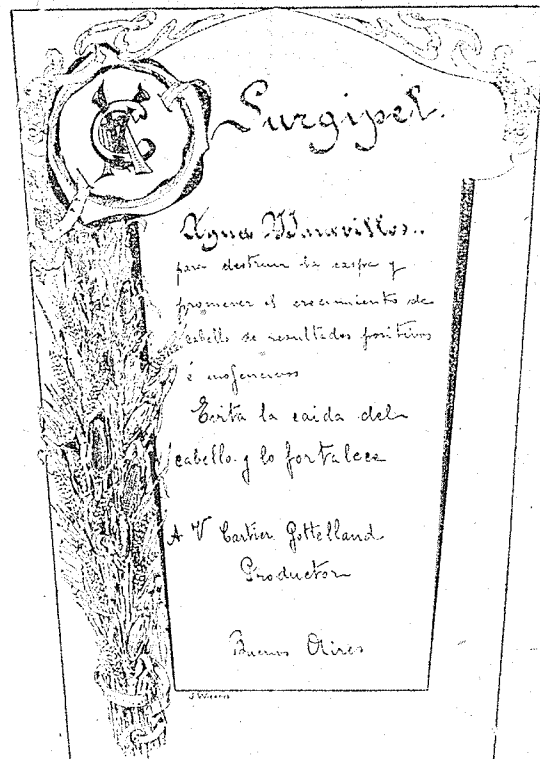 Surgipel.
Agua Maravillosa..
para destruir la caspa y
promover el crecimiento de
cabello de resultados positivos
é inofensivos
Evita la caida del
cabello y lo fortalece
A V Cartier Gottelland
Productor
Buenos Aires